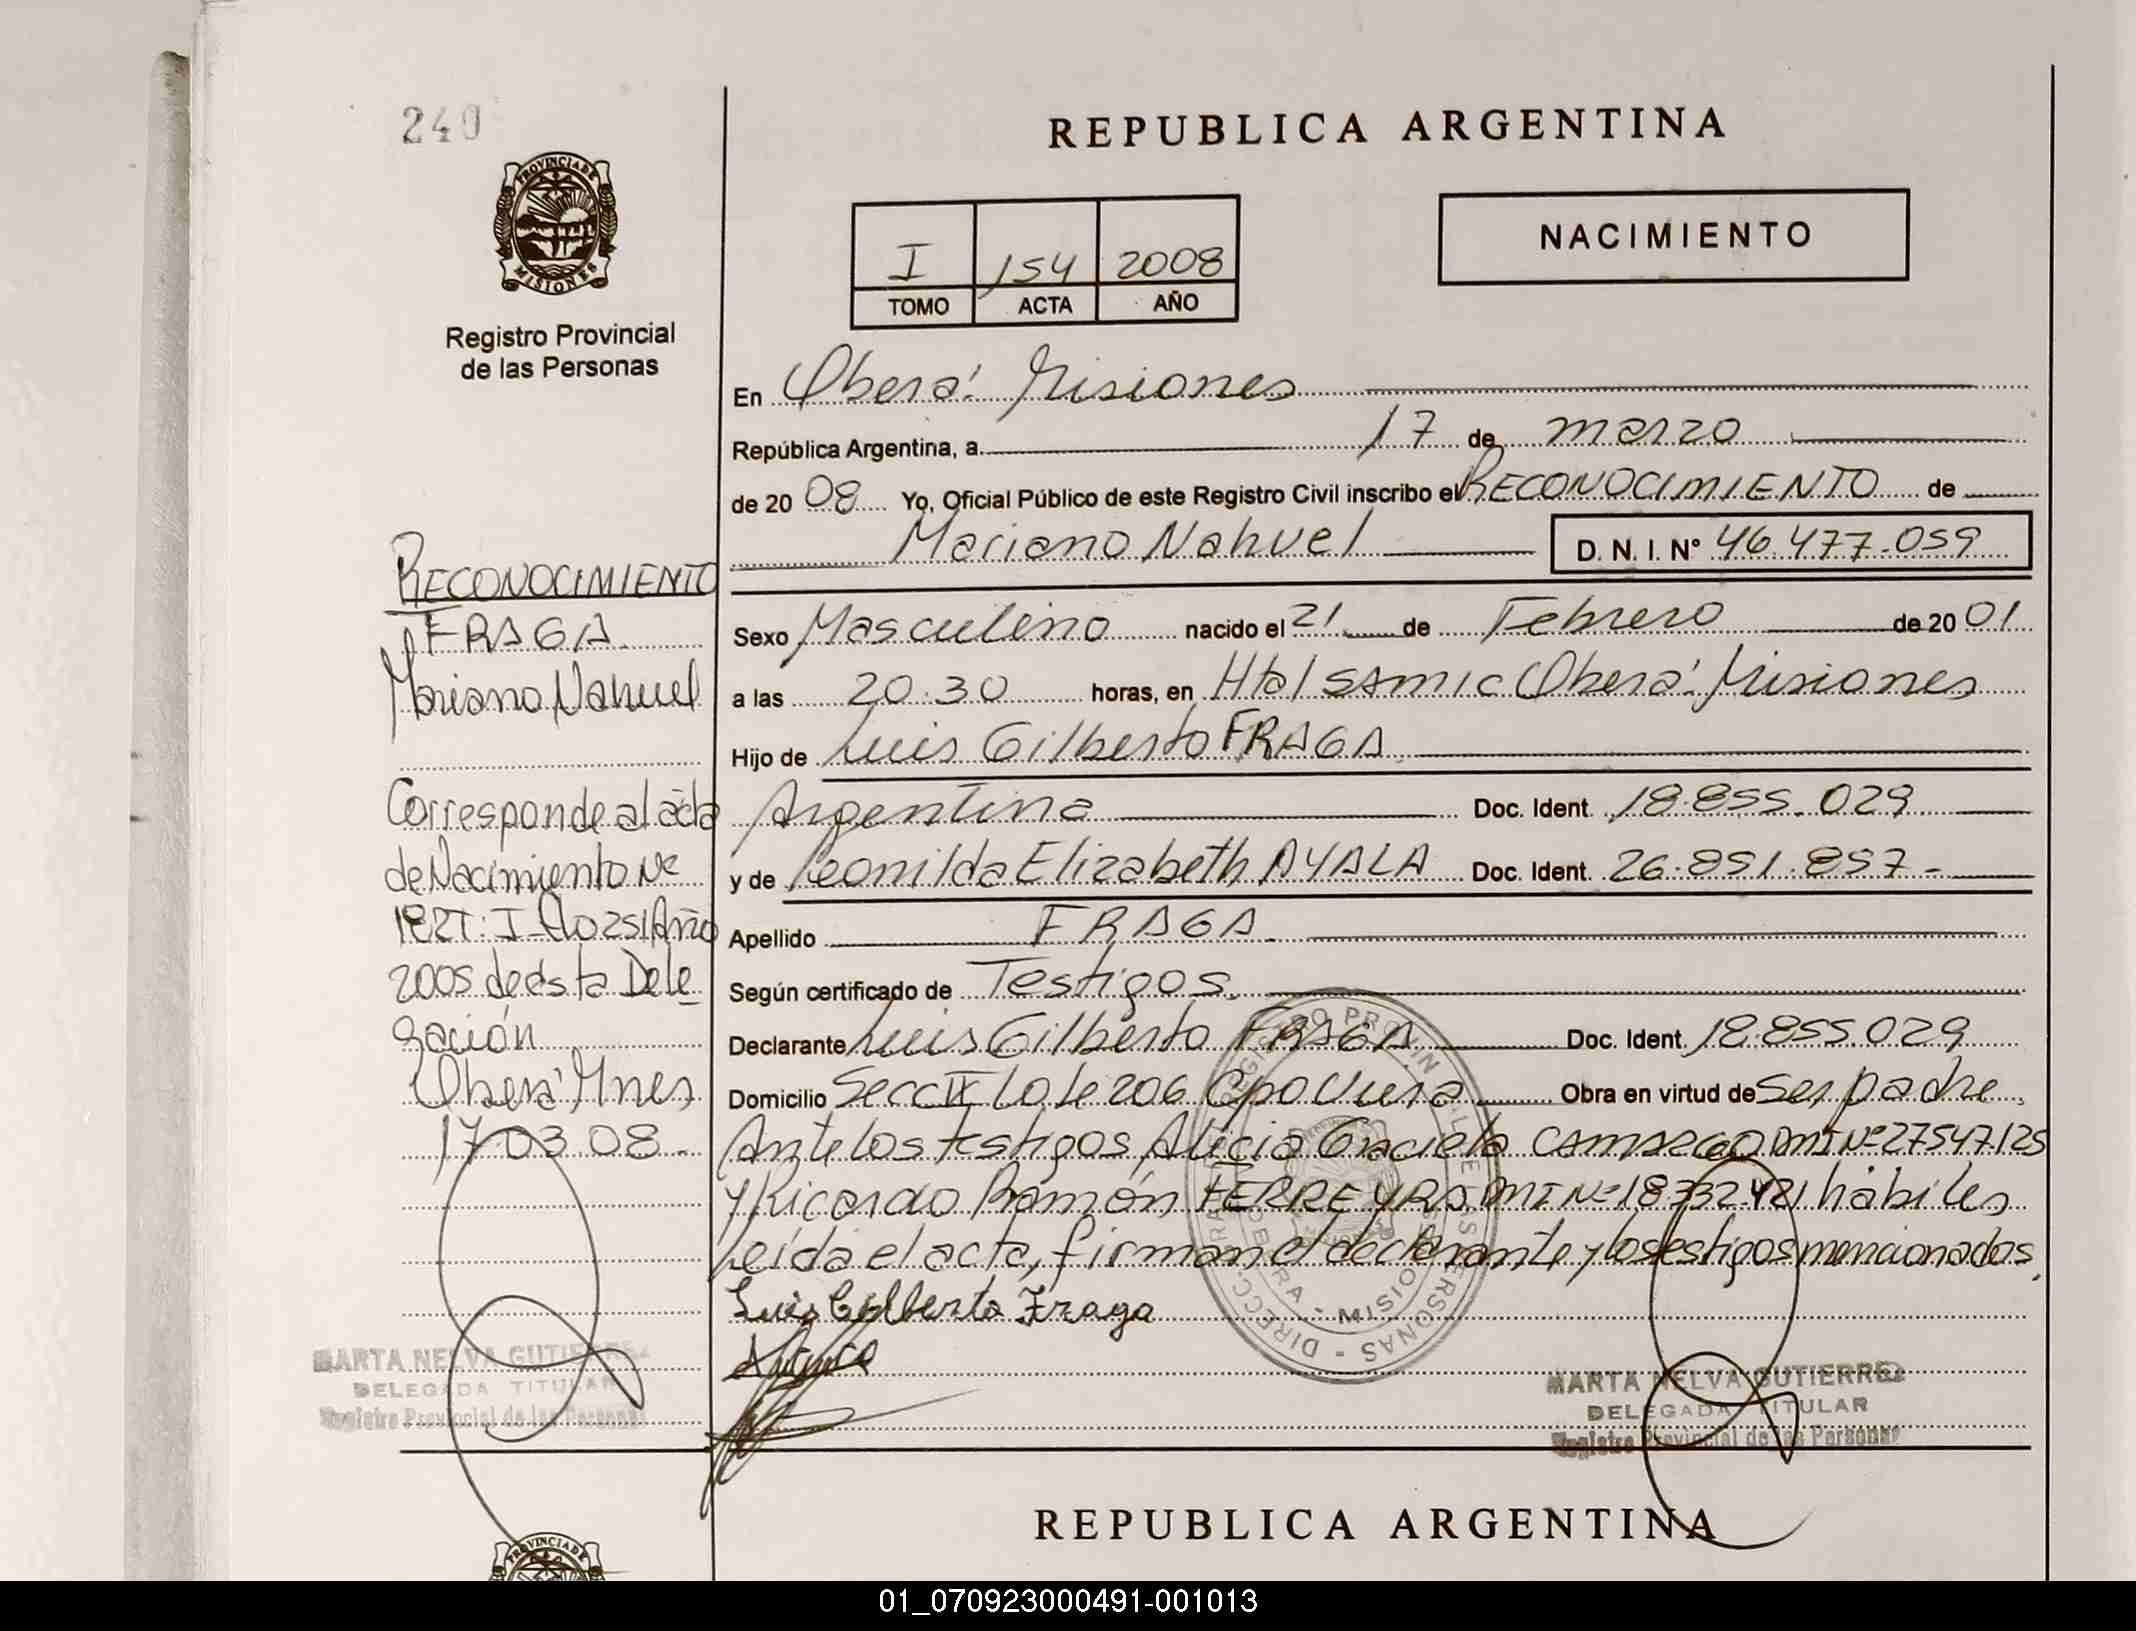 240
REPUBLICA ARGENTINA
PROVINCIA DE
MISIONES
Registro Provincial
de las Personas
I 154 2008
TOMO ACTA AÑO
NACIMIENTO
En Oberá Misiones
República Argentina, a 17 de marzo
de 2008 Yo, Oficial Público de este Registro Civil inscribo el RECONOCIMIENTO de
Mariano Nahuel D. N. I. N° 46.477.059
Sexo Masculino nacido el 21 de Febrero de 2001
a las 20.30 horas, en Htal SAMIC Oberá Misiones
Hijo de Luis Gilberto FRAGA
Argentina Doc. Ident. 18.855.029
y de Leonilda Elizabeth AYALA Doc. Ident. 26.851.857.-
Apellido FRAGA
Según certificado de Testigos.
Declarante Luis Gilberto FRAGA Doc. Ident. 18.855.029
Domicilio Secc Lote 206 Obra en virtud de Ser padre
Ante los testigos Alicia Graciela CAMARGO DNI Nº 27547.125
y Ricardo Ramón FERREYRA DNI Nº 18.732.421 hábiles,
Leída el acta, firman el declarante y los estigos mencionados.
Luis Gilberto Fraga
RECONOCIMIENTO
FRAGA
Mariano Nahuel
Corresponde al acta
de Nacimiento Nº
182 T: I Año
2005 de esta Dele
gación
Oberá Mnes
17 03 08.
MARTA NELVA GUTIERREZ
DELEGADA TITULAR
Registro Provincial de las Personas
MARTA NELVA GUTIERREZ
DELEGADA TITULAR
Registro Provincial de las Personas
OBERA - MISIONES
REPUBLICA ARGENTINA
PROVINCIA DE
01_070923000491-001013